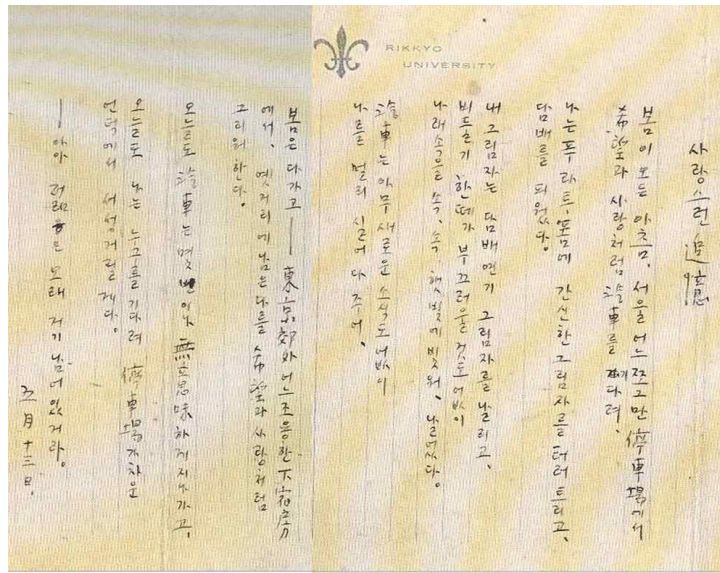 RIKKYO
UNIVERSITY
사랑스런 追憶
봄이 오든 아츰, 서울 어느 쪼그만 停車場에서
希望과 사랑처럼 汽車를 기다려,
나는 푸라트·폼에 간신한 그림자를 터러트리고,
담배를 피웠다.
내 그림자는 담배연기 그림자를 날리고,
비둘기 한떼가 부끄러울 것도 없이
나래속을 속, 속 햇빛에 빛워, 날었다.
汽車는 아무 새로운 소식도 없이
나를 멀리 실어다 주어,
봄은 다가고—東京郊外 어느 조용한 下宿房
에서, 옛거리에 남은 나를 希望과 사랑처럼
그리워한다.
오늘도 汽車는 몇번이나 無意味하게 지나가고,
오늘도 나는 누구를 기다려 停車場 가차운
언덕에서 서성거릴게다.
—아아 젊음은 오래 거기 남어 있거라.
五月十三日.